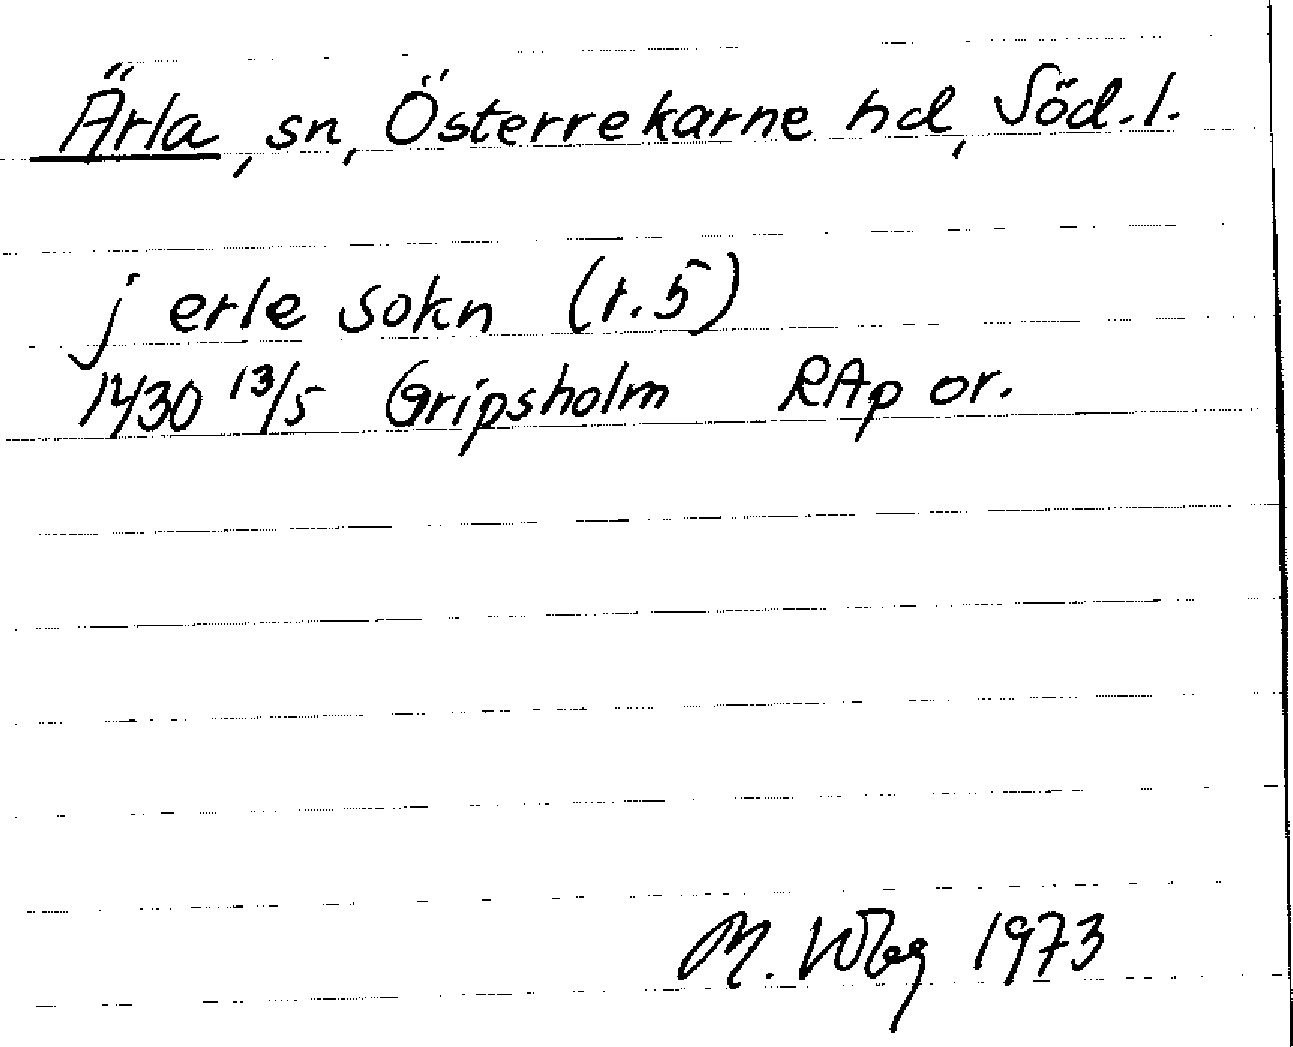 Ärla, sn, Österrekarne hd, Söd.l.
j erle sokn (r.5)
1430 13/5 Gripsholm RAp or.
M. Wbg 1973